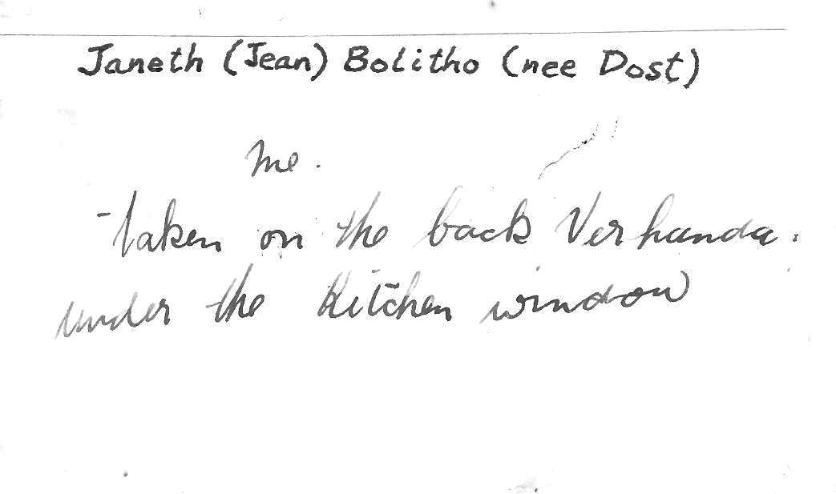 Janeth (Jean) Bolitho (nee Dost)
Me.
taken on the back Verhanda.
under the Kitchen window